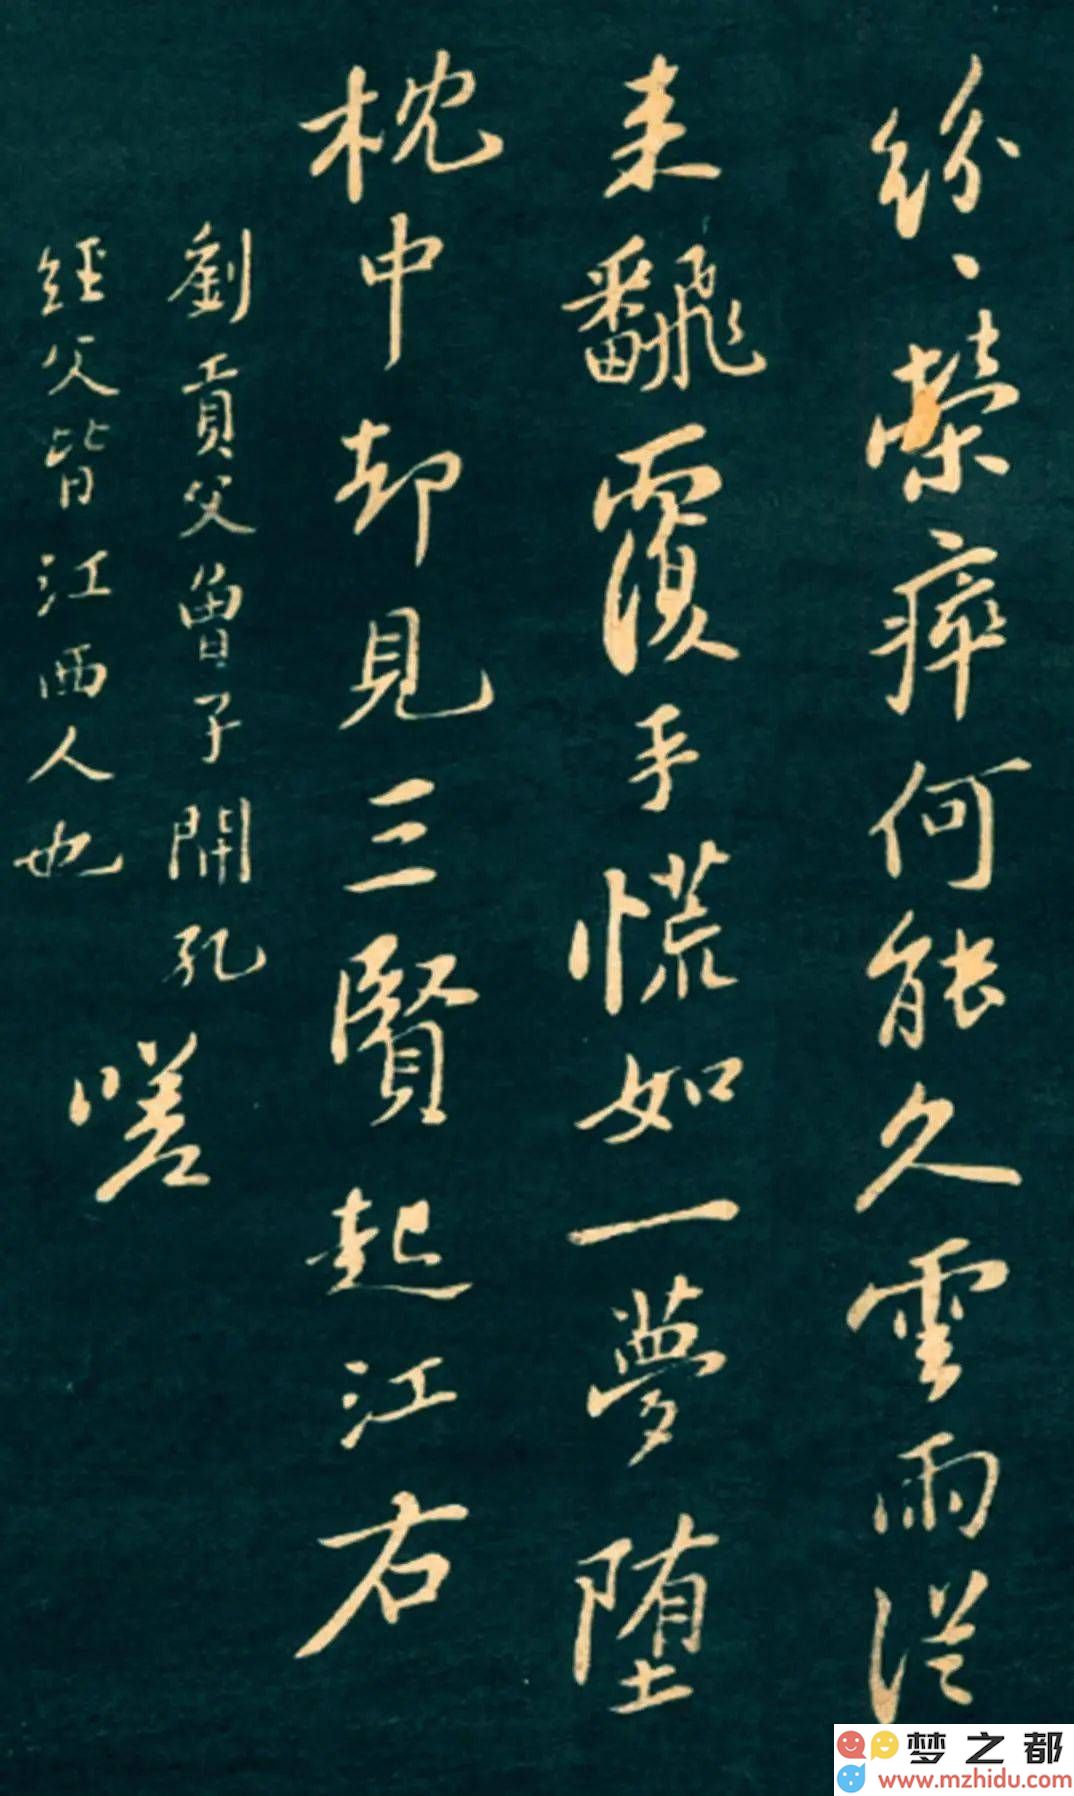 紛、榮瘁何能久雲雨従
来飜覆手慌如一夢堕
枕中却見三賢起江右
劉貢父曾子開孔
経父皆江西人也
嗟
梦之都
www.mzhidu.com